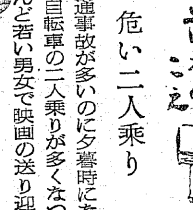 危い二人乗り
通事故が多いのに夕暮時に
自転車の二人乗りが多くなつ
んど若い男女で映画の送り迎